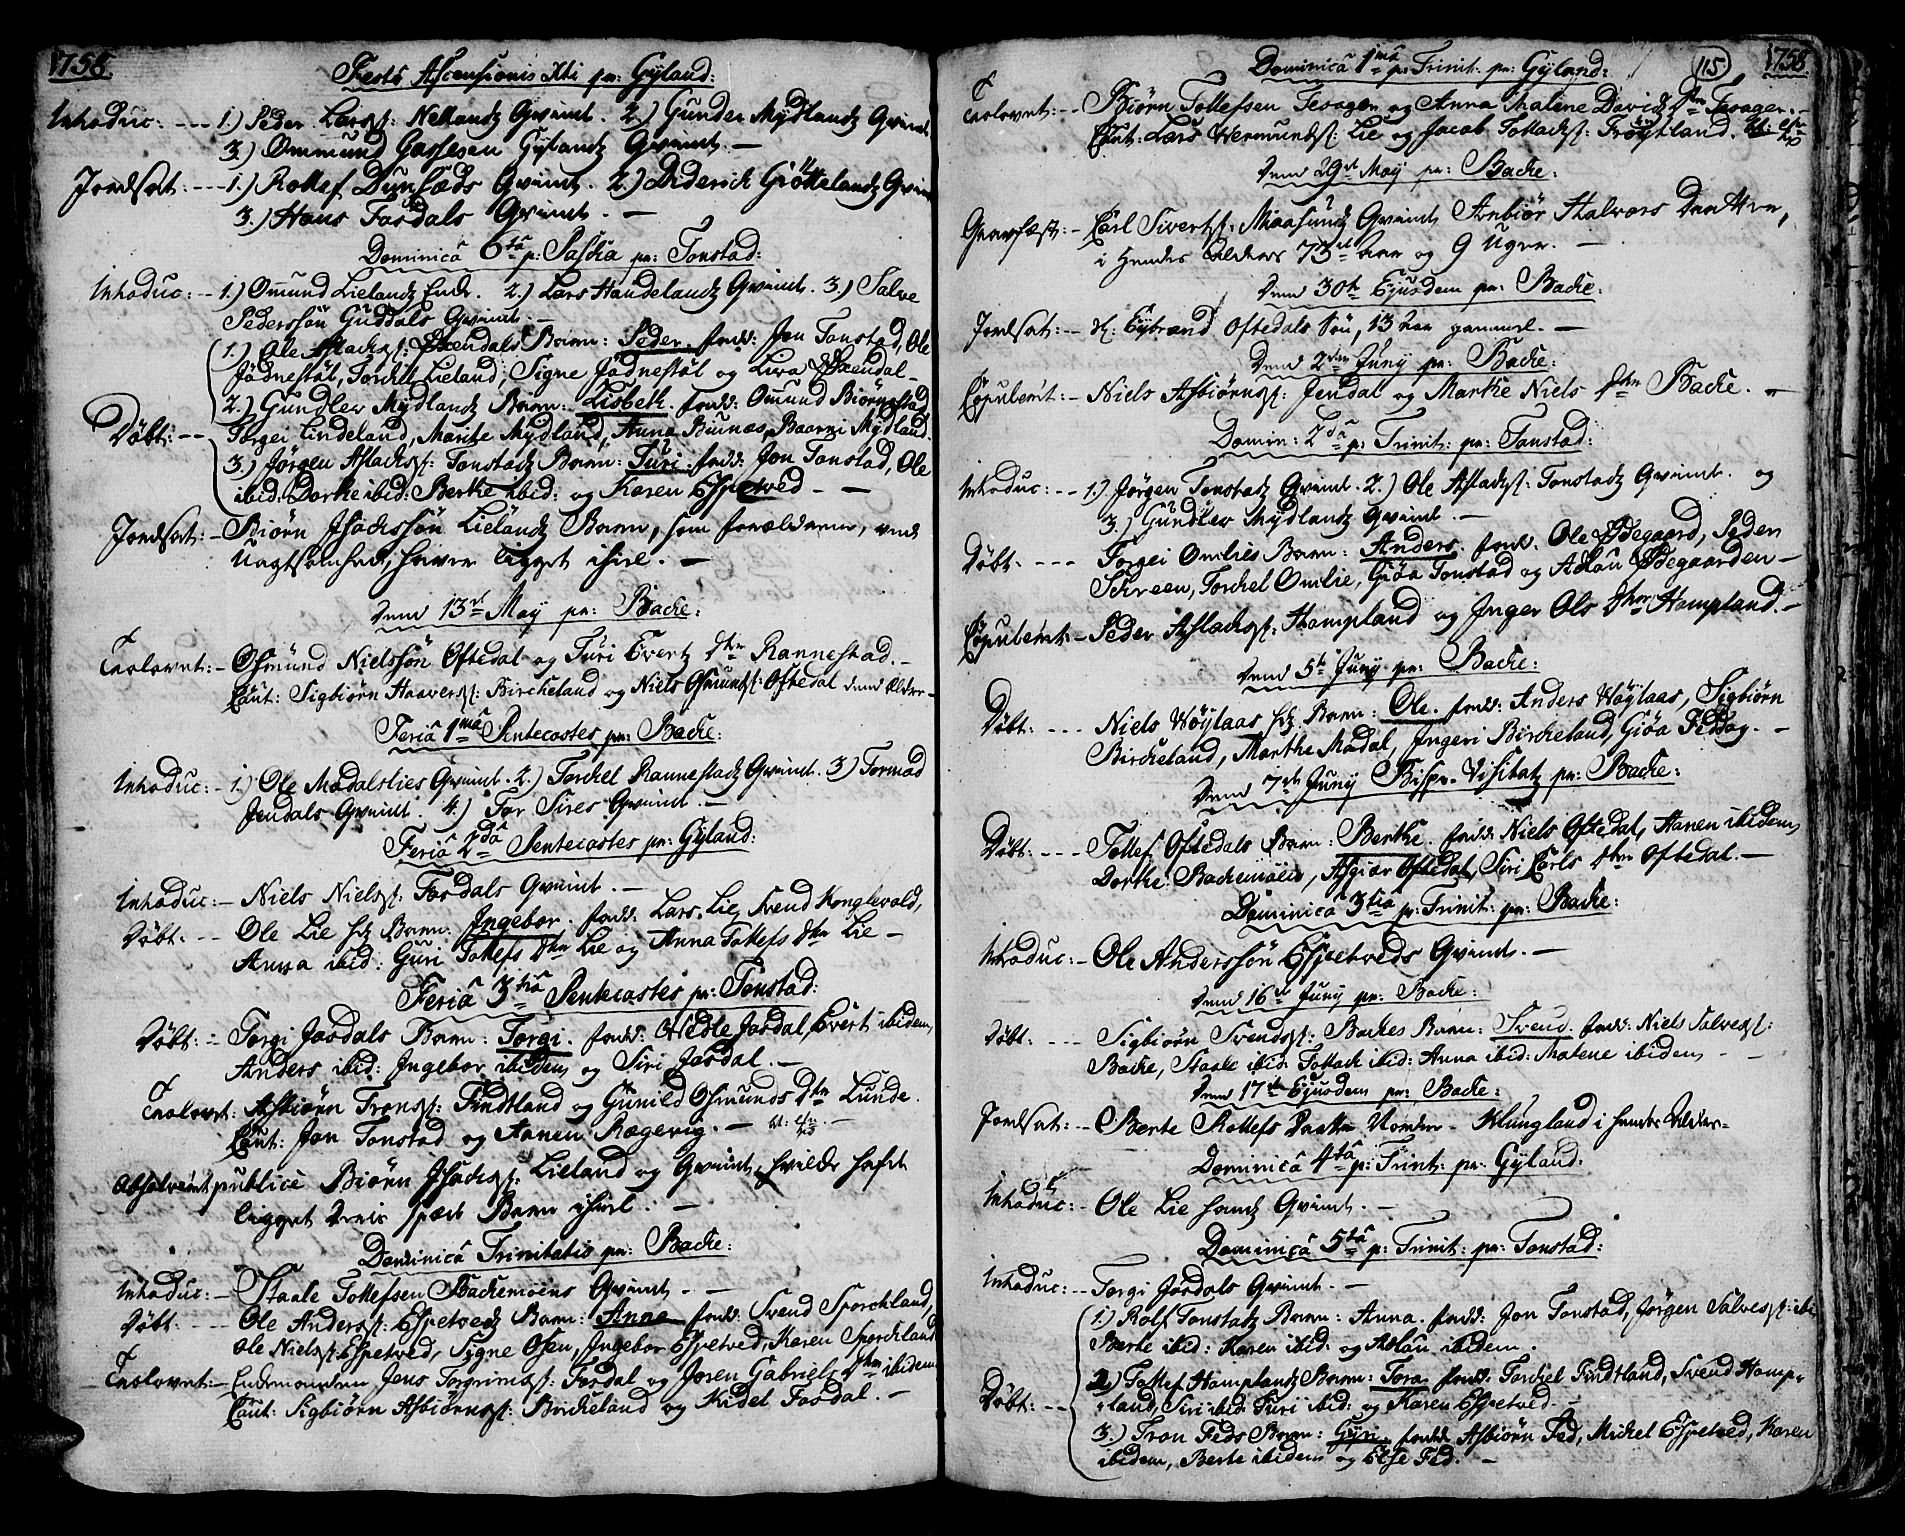 1758.
Festo Ascensionis Xti pr: Gyland:
Introduc: --- 1.) Peder Lars: Netlandz Qvind. 2.) Gunder Mydlandz Qvind
3.) Ommund Gassesen Gylandz Qvind. —
Jordsat: --- 1.) Rollef Dunsæds Qvind. 2.) Diderich Giøttelandz Qvind
3.) Hans Fasdals Qvind. —
Dominica 6ta p: Pascha pr: Tonstad:
Introduc: -- 1.) Omund Lielandz Qvind. 2.) Lars Haudelandz Qvind. 3.) Salve
Pederssøn Guddals Qvind. —
1.) Ole Aslachs: Barn: Peder. fadd: Jon Tonstad, Ole
Jødnestøl, Torchel Lieland, Signe Jødnestøl og Liva
2.) Gundlev Mydlandz Barn: Lisbeth. fadd: Omund Biørnestad
Døbt: -- Torgei Lindeland, Marite Mydland, Anna Bunæs, Mydland.
3.) Jørgen Aslachs: Tonstadz Barn: Turi. fadd: Jon Tonstad, Ole
ibid: Dorthe ibid: Berthe ibid: og Karen Espetved - —
Jordsat: - Biørn Isachssøn Lielandz Barn, som forældrene, ved
Uagtsomhed, haver ligget ihiel. —
Dend 13de May pr: Bache:
Trolovet: - Osmund Nielssøn Oftedal og Turi Evertz Dtr Rannestad. -
Caut: Sigbiørn Haavers: Bircheland og Niels Osmunds: Oftedal
Feria 1ma Pentecostes pr: Bache:
Introduc: - 1.) Ole Modalslies Qvind. 2.) Torchel Rannestadz Qvind. 3.) Tormod
Jendals Qvind. 4.) Tor Sires Qvind. —
Feria 2da Pentecostes pr: Gyland:
Introduc: - Niels Niels: Fasdals Qvind. —
Døbt: -- Ole Lie hz Barn: Ingebor. fadd: Lars Lie, Svend Konglevold,
Anna ibid: Guri Tollefs Dtr Lie og Anna Tollefs Dtr Lie -
Feria 3tia Pentecostes pr: Tonstad:
Døbt: - Torgi Josdals Barn: Torgi. fadd: Josdal, Evert ibidem,
Anders ibid: Ingebor ibidem og Siri Josdal. —
Trolovet: Asbiørn Trons: Findtland og Gunild Osmunds Dtr Lunde.
Caut: Jon Tonstad og Aanen Rægevig. —
Absolverit publice Biørn Isachs: Lieland og Qvind, hvilde hafde
ligget deris spæde Barn ihiel. —
Dominica Trinitatis pr: Bache:
Introduc: - Staale Tollefsen Bachemoens Qvind - -
Døbt: --- Ole Anders: Espetvedz Barn: Anna fadd: Svend Sporchland,
Ole Niels: Espetved, Signe Osen, Ingebor Espetved, Karen Sporchland
Trolovet: - Jens Torgrims: Fasdal og Joren Gabriels Dtr ibidem
Caut: Sigbiørn Asbiørns: Bircheland og Kidel Fasdal. -
115 1758
Dominica 1ma p: Trinit: pr: Gyland:
Trolovet: -- Biørn Tollefsen Tesager og Anna Malene Davidz Dtr Tesager.
Caut: Lars Wermunds: Lie og Jacob Tollachs: Frøytland.
Dend 29de May pr: Bache:
Gravfæst: - Carl Siverts: Maasundz Qvind Anbiør Halvors Datter,
i Hendes Alders 73de Aar og 9 Uger. —
Dend 30te Ejusdem pr: Bache:
Jordsat: - Eybrand Oftedals Søn, 13 Aar gammel. —
Dend 2den Juny pr: Bache:
Copulerit: - Niels Asbiørns: Jendal og Marthe Niels Dtr Bache. -
Domin: 2da p: Trinit: pr: Tonstad:
Introduc: -- 1.) Jørgen Tonstadz Qvind. 2.) Ole Aslachs: Tonstadz Qvind. og
3.) Gundlev Mydlandz Qvind. —
Døbt: --- Torgei Omlies Barn: Anders. fadd: Ole Ødegaard, Peder
Schreen, Torchel Omlie, Giøa Tonstad og Aslau Ødegaarden -
Copulerit: - Peder Aslachs: Hompland og Inger Ols Dtr Hompland. -
Dend 5te Juny pr: Bache:
Døbt: --- Niels Høylaas hz Barn: Ole. fadd: Anders Høylaas, Sigbiørn
Bircheland, Marthe Modal, Ingeri Bircheland, Giøa Feddog. -
Dend 7de Juny Bispe-Visitatz pr: Bache:
Døbt: --- Tollef Oftedals Barn: Berthe. fadd: Niels Oftedal, Aanen ibidem,
Dorthe Bachemoen, Asgier Oftedal, Siri Carls Dtr Oftedal. —
Dominica 3tia p: Trinit: pr: Bache:
Introduc: - Ole Anderssøn Espetveds Qvind. —
Dend 16de Juny pr: Bache:
Døbt: --- Sigbiørn Svends: Baches Barn: Svend. fadd: Niels Salves:
Bache, Staale ibid: Tollach ibid: Anna ibid: Malene ibidem - -
Dend 17de Ejusdem pr: Bache:
Jordsat: -- Berte Rollefs Datter Norder-Klungland i hendes Alder-
Dominica 4ta p: Trinit: pr: Gyland:
Introduc: - Ole Lie handz Qvind. —
Dominica 5ta p: Trinit: pr: Tonstad:
Introduc: -- Torgi Josdals Qvind. —
1.) Rolf Tonstadz Barn: Anna. fadd: Jon Tonstad, Jørgen Salves: ibi
Berte ibid: Karen ibid: og Aslau ibidem.
2.) Tollef Homplandz Barn: Tora. fadd: Torchel Findtland, Svend Homp-
Døbt: -- land, Siri ibid: Turi ibid: og Karen Espetved. -
3.) Tron Feds Barn: Gyri. fadd: Asbiørn Fed, Michel Espetved, Karen
ibidem, Berte ibidem og Else Fed. —